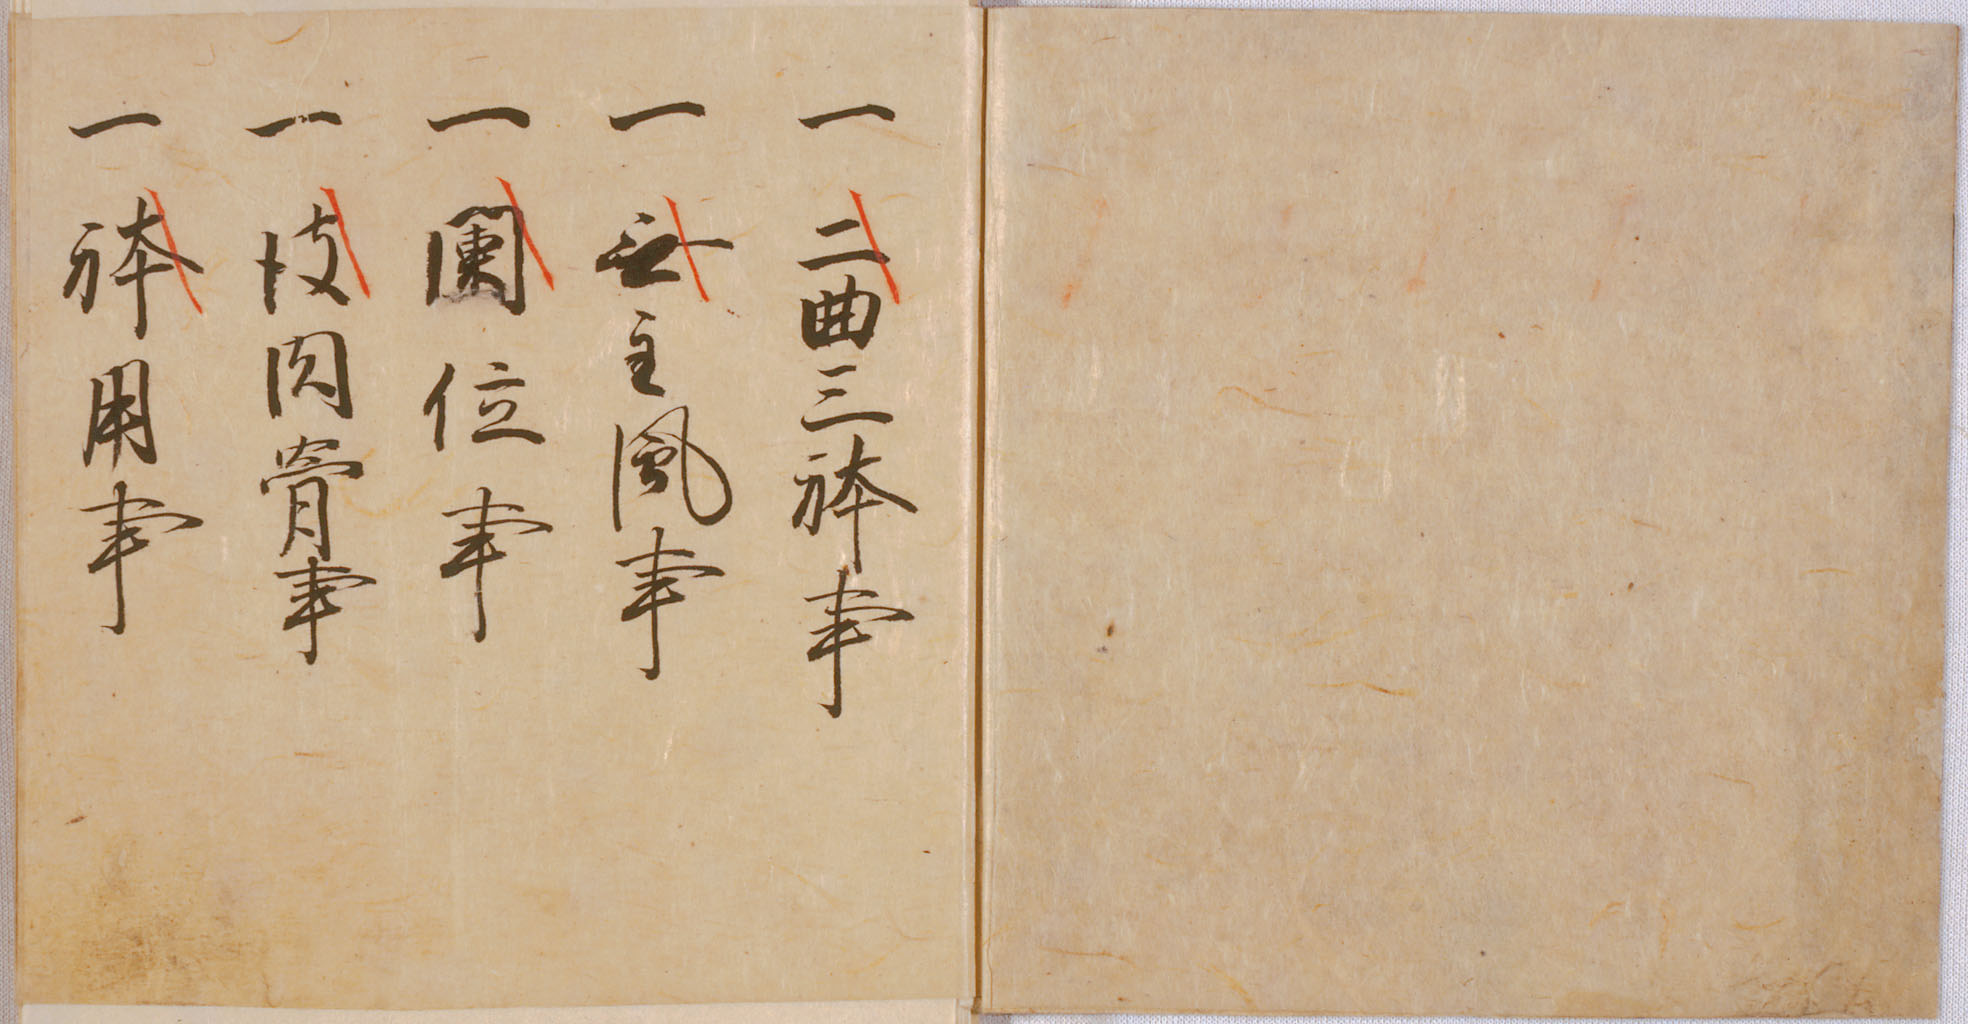 一 二曲三体事
一 無主風事
一 闌位事
一 皮肉骨事
一 体用事